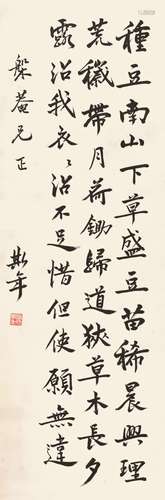 種豆南山下草盛豆苗稀晨興理
荒穢帶月荷鋤歸道狹草木長夕
露沾我衣〻沾不足惜但使願無違
槃菴兄正 斯年